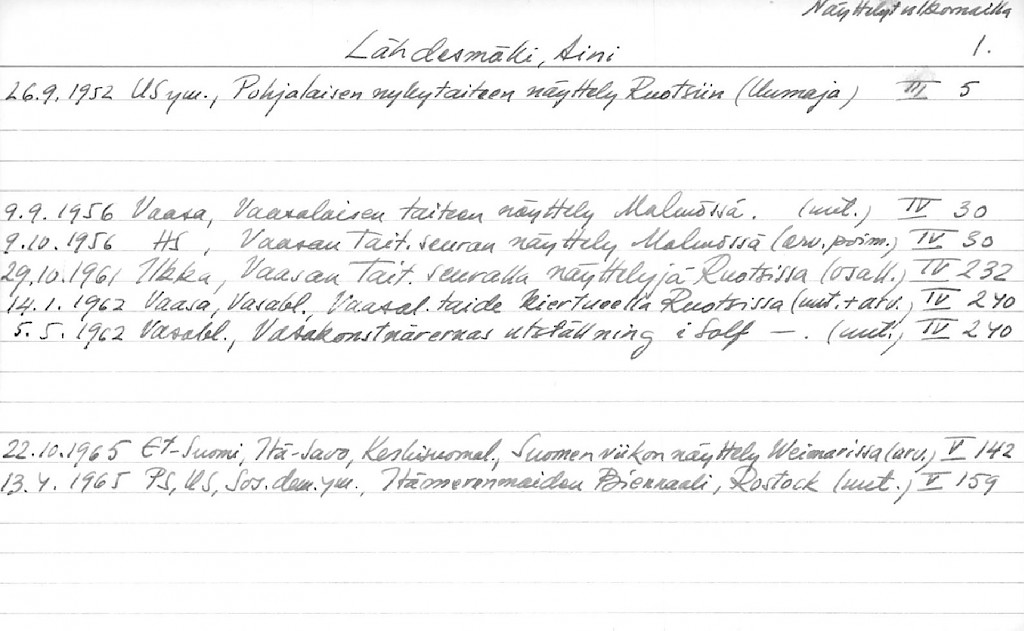 Näyttelyt ulkomailla
Lähdesmäki, Aini 1.
26.9.1952 US ym., Pohjalaisen nykytaiteen näyttely Ruotsiin (Uumaja) III 5
9.9.1956 Vaasa, Vaasalaisen taiteen näyttely Malmössä. (uut.) IV 30
9.10.1956 HS, Vaasan Tait. seuran näyttely Malmössä (arv. poim.) IV 30
29.10.1961 Ilkka, Vaasan Tait. seuralla näyttelyjä Ruotsissa (osall.) IV 232
14.1.1962 Vaasa, Vasabl., Vaasal. taide kiertueella Ruotsissa (uut. + arv.) IV 240
5.5.1962 Vasabl., Vasakonstnärernas utställning i Solf —. (uut.) IV 240
22.10.1965 Et-Suomi, Itä-Savo, Keskisuomal., Suomen viikon näyttely Weimarissa (arv.) V 142
13.4.1965 PS, US, Sos.dem. ym., Itämerenmaiden Biennaali, Rostock (uut.) V 159